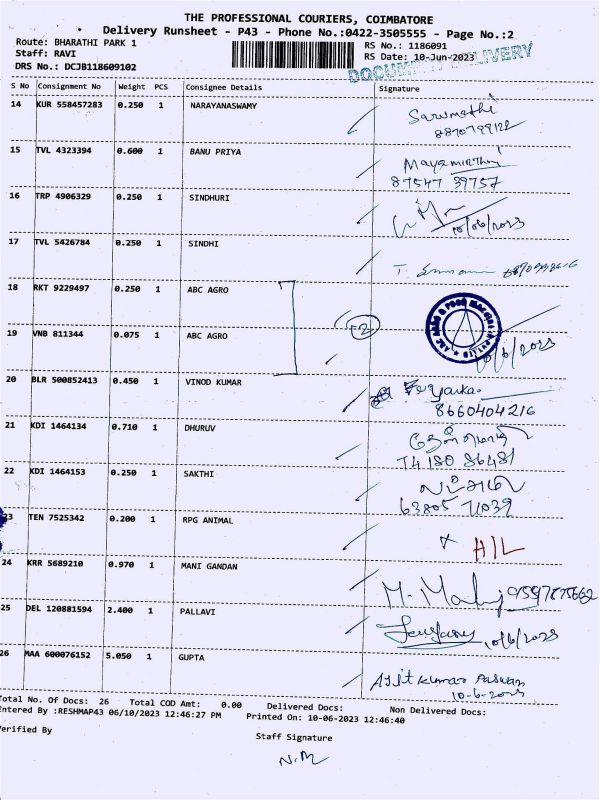 THE PROFESSIONAL COURIERS, COIMBATORE
Delivery Runsheet - P43 - Phone No.:0422-3505555 - Page No.:2
Route: BHARATHI PARK 1 RS No.: 1186091
Staff: RAVI RS Date: 10-Jun-2023
DRS No.: DCJB118609102
DELIVERY
S No Consignment No Weight PCS Consignee Details Signature
14 KUR 558457283 0.250 1 NARAYANASWAMY
15 TVL 4323394 0.600 1 BANU PRIYA
87547 39757
16 TRP 4906329 0.250 1 SINDHURI
10/06/2023
17 TVL 5426784 0.250 1 SINDHI
18 RKT 9229497 0.250 1 ABC AGRO
2
19 VNB 811344 0.075 1 ABC AGRO
10/6/2023
20 BLR 500852413 0.450 1 VINOD KUMAR
8660404216
21 KDI 1464134 0.710 1 DHURUV
74180 86481
22 KDI 1464153 0.250 1 SAKTHI
63805 71039
23 TEN 7525342 0.200 1 RPG ANIMAL
x H/L
24 KRR 5689210 0.970 1 MANI GANDAN
25 DEL 120881594 2.400 1 PALLAVI
10/6/2023
26 MAA 600076152 5.050 1 GUPTA
Ajit Kumar Paswan
10-6-2023
Total No. Of Docs: 26 Total COD Amt: 0.00 Delivered Docs: Non Delivered Docs:
Entered By :RESHMAP43 06/10/2023 12:46:27 PM Printed On: 10-06-2023 12:46:40
Verified By
Staff Signature